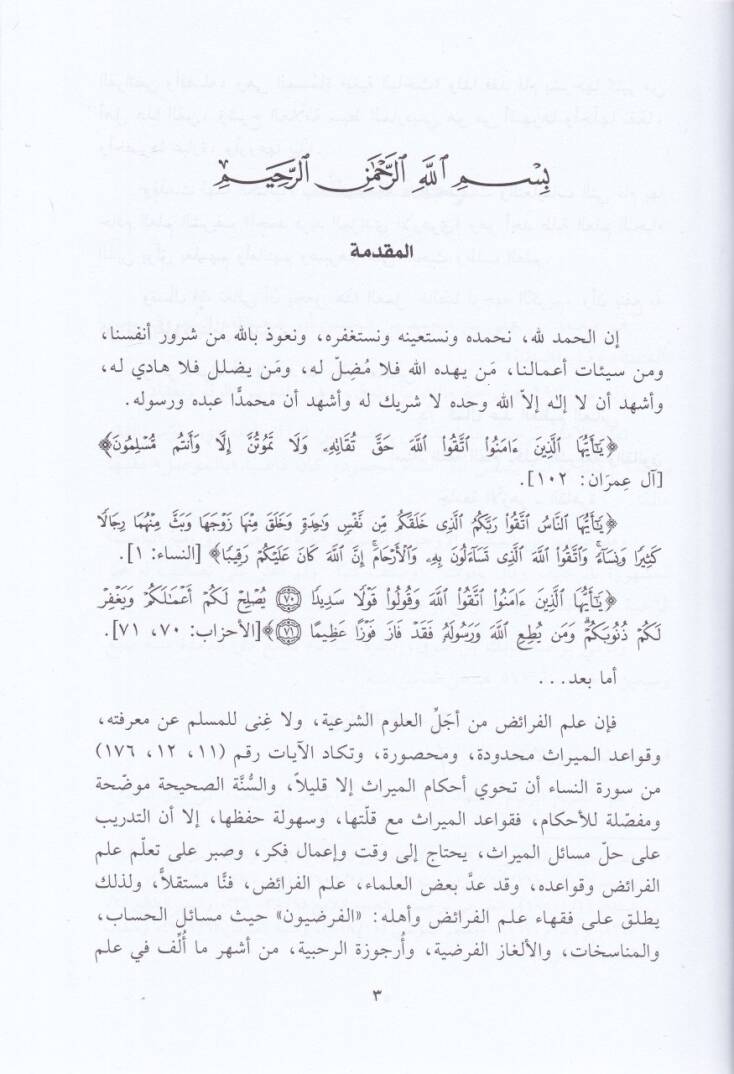 بِسْمِ اللَّهِ الرَّحْمَٰنِ الرَّحِيمِ
المقدمة
إن الحمد لله، نحمده ونستعينه ونستغفره، ونعوذ بالله من شرور أنفسنا،
ومن سيئات أعمالنا، مَن يهده الله فلا مُضِلّ له، ومَن يضلل فلا هادي له،
وأشهد أن لا إلٰه إلاّ الله وحده لا شريك له وأشهد أن محمدًا عبده ورسوله.
﴿يَٰٓأَيُّهَا الَّذِينَ ءَامَنُوا۟ اتَّقُوا۟ اللَّهَ حَقَّ تُقَانِهِۦ وَلَا تَمُوتُنَّ إِلَّا وَأَنتُم مُّسْلِمُونَ﴾
[آل عِمرَان: ١٠٢].
﴿يَٰٓأَيُّهَا النَّاسُ اتَّقُوا۟ رَبَّكُمُ الَّذِى خَلَقَكُم مِّن نَّفْسٍ وَٰحِدَةٍ وَخَلَقَ مِنْهَا زَوْجَهَا وَبَثَّ مِنْهُمَا رِجَالًا
كَثِيرًا وَنِسَآءً ۚ وَاتَّقُوا۟ اللَّهَ الَّذِى تَسَآءَلُونَ بِهِۦ وَالْأَرْحَامَ ۚ إِنَّ اللَّهَ كَانَ عَلَيْكُمْ رَقِيبًا﴾ [النساء: ١].
﴿يَٰٓأَيُّهَا الَّذِينَ ءَامَنُوا۟ اتَّقُوا۟ اللَّهَ وَقُولُوا۟ قَوْلًا سَدِيدًا ۝٧٠ يُصْلِحْ لَكُمْ أَعْمَٰلَكُمْ وَيَغْفِرْ
لَكُمْ ذُنُوبَكُمْ ۗ وَمَن يُطِعِ اللَّهَ وَرَسُولَهُۥ فَقَدْ فَازَ فَوْزًا عَظِيمًا ۝٧١﴾ [الأحزاب: ٧٠، ٧١].
أما بعد...
فإن علم الفرائض من أجَلِّ العلوم الشرعية، ولا غِنى للمسلم عن معرفته،
وقواعد الميراث محدودة، ومحصورة، وتكاد الآيات رقم (١١، ١٢، ١٧٦)
من سورة النساء أن تحوي أحكام الميراث إلا قليلاً، والسُّنَّة الصحيحة موضّحة
ومفصّلة للأحكام، فقواعد الميراث مع قلّتها، وسهولة حفظها، إلا أن التدريب
على حلّ مسائل الميراث، يحتاج إلى وقت وإعمال فكر، وصبر على تعلّم علم
الفرائض وقواعده، وقد عدَّ بعض العلماء، علم الفرائض، فنًّا مستقلاًّ، ولذلك
يطلق على فقهاء علم الفرائض وأهله: «الفرضيون» حيث مسائل الحساب،
والمناسخات، والألغاز الفرضية، وأُرجوزة الرحبية، من أشهر ما أُلِّف في علم
٣